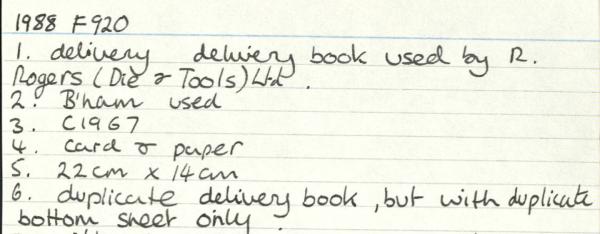 1988 F920
1. delivery delivery book used by R.
Rogers (Die & Tools) Ltd.
2. B'ham used
3. C1967
4. card & paper
5. 22cm x 14cm
6. duplicate delivery book, but with duplicate
bottom sheet only.